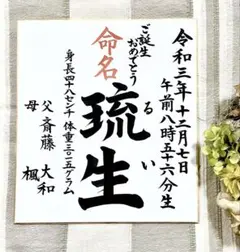 令和三年十二月七日
午前八時五十六分生
ご誕生
おめでとう
命名
琉生
るい
身長四十八センチ 体重三〇二五グラム
父 斎藤 大和
母 楓